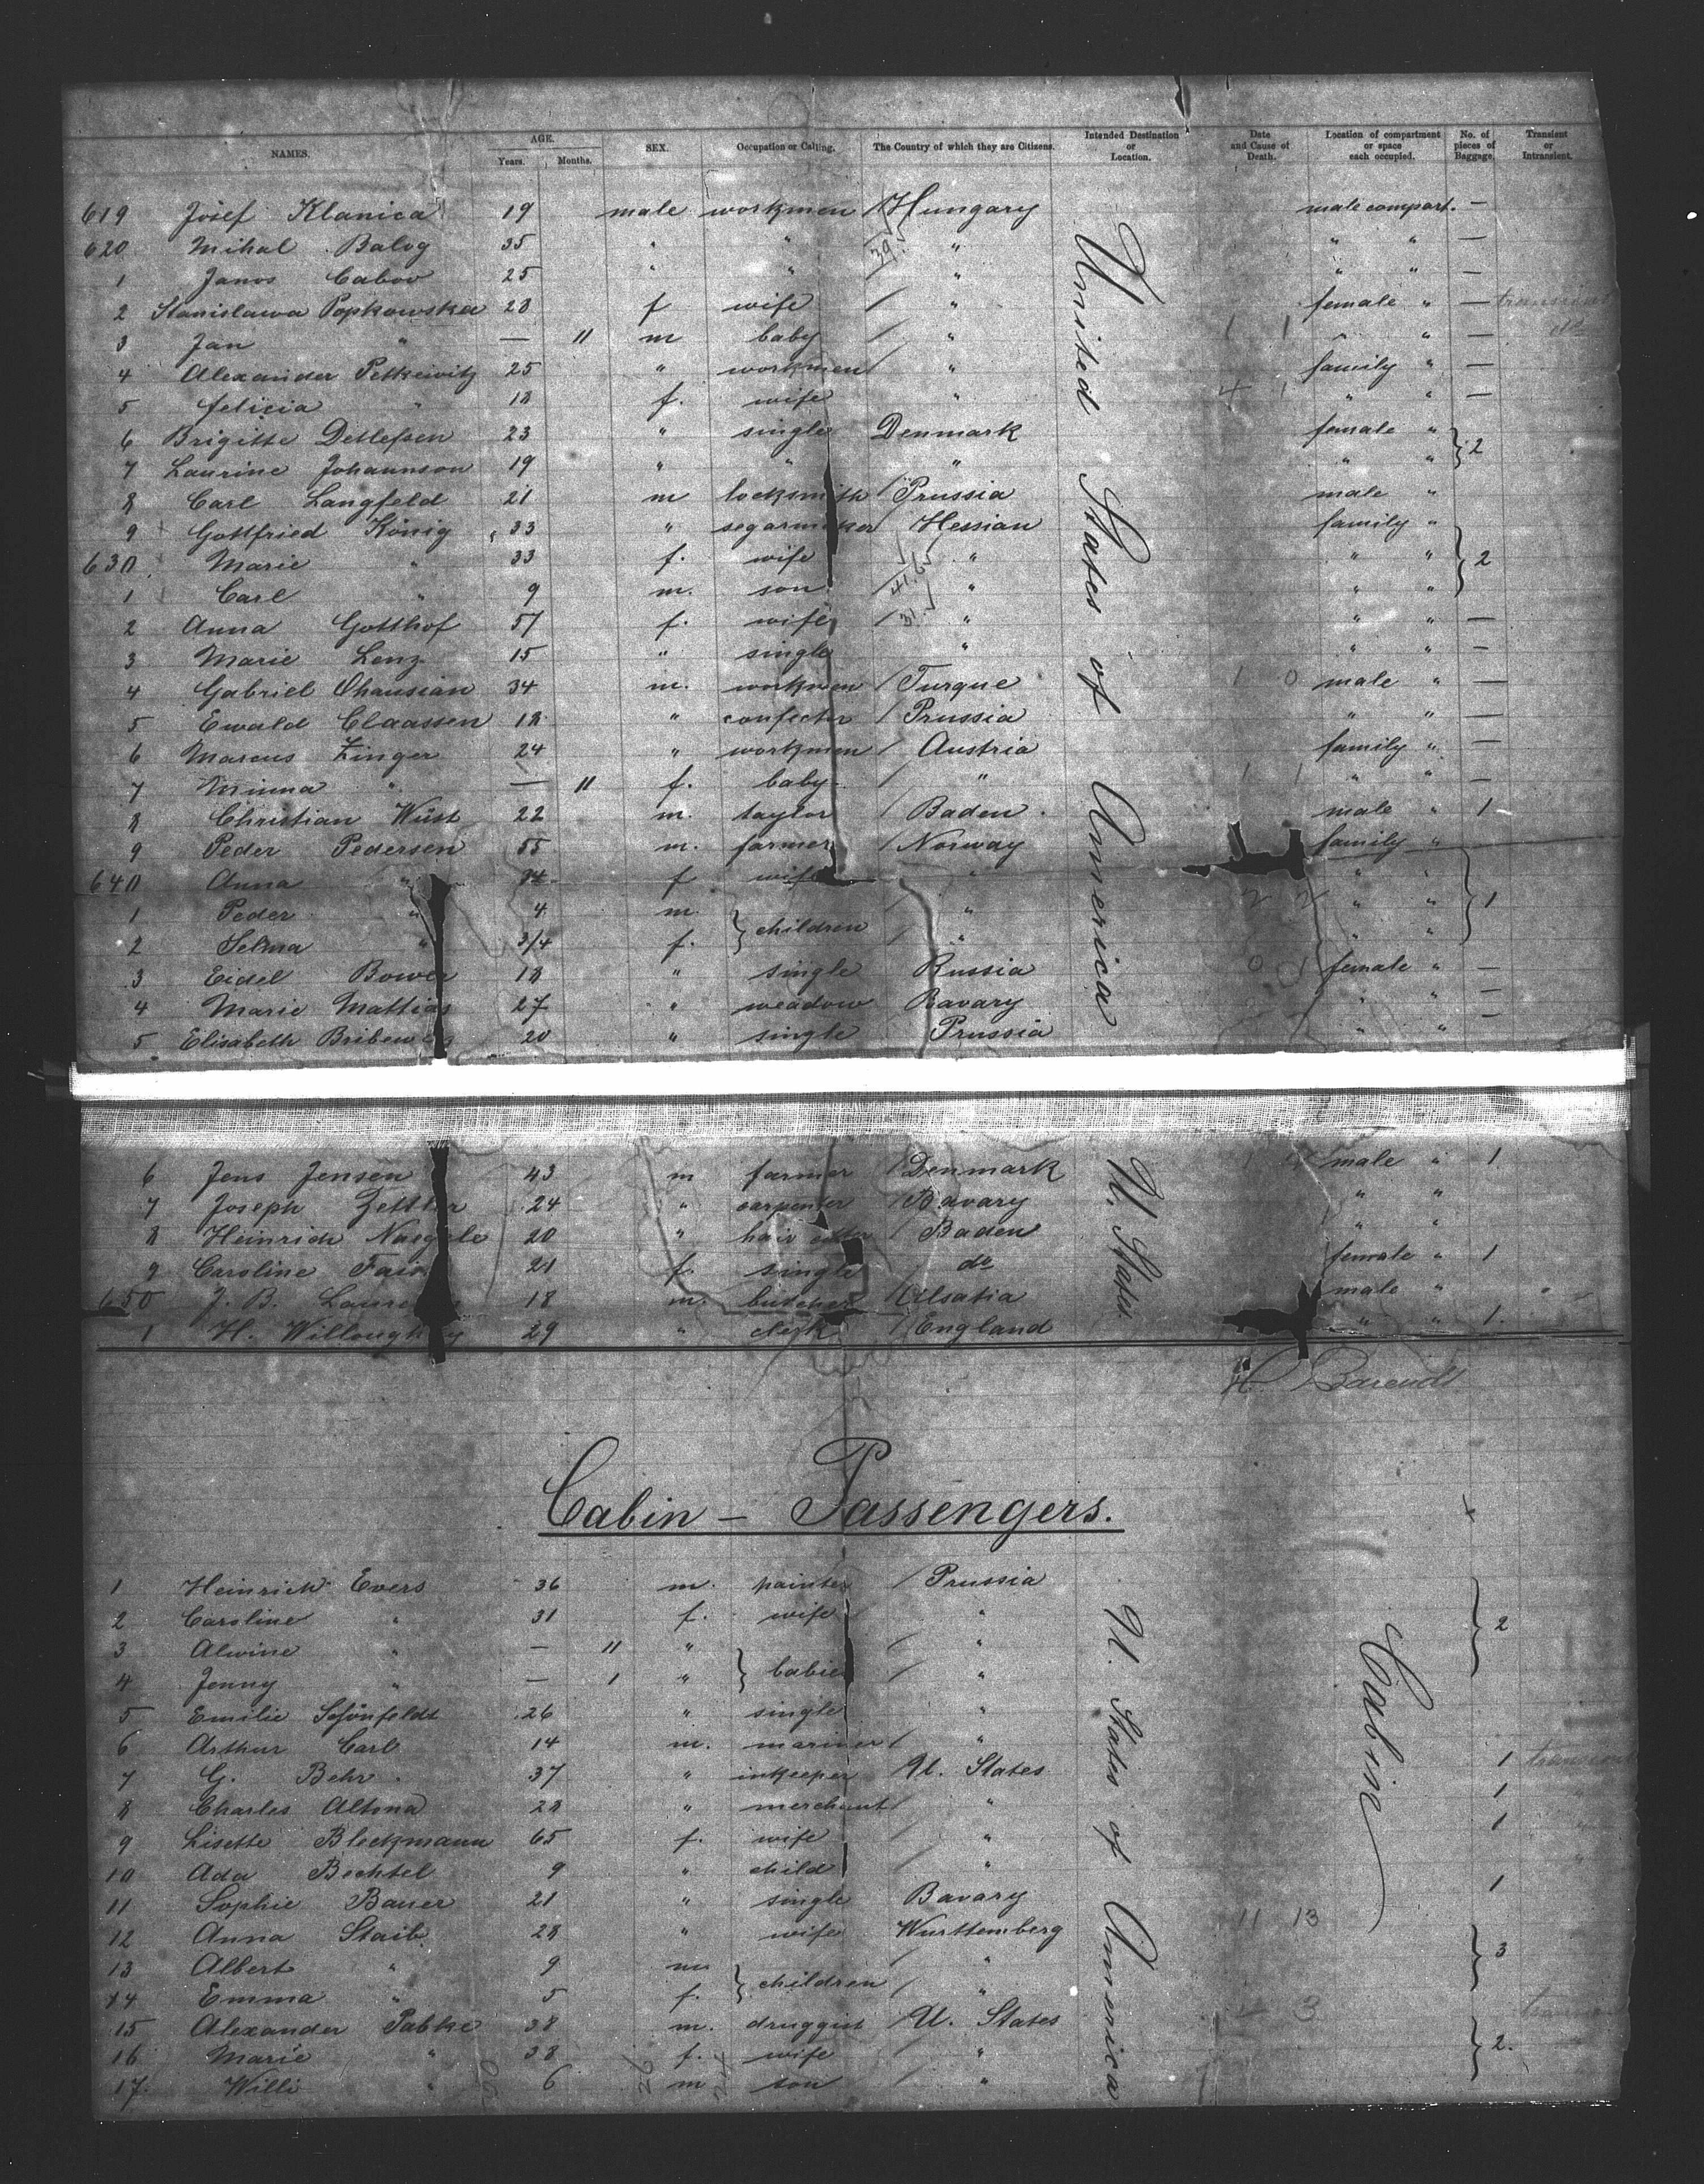 NAMES. AGE. Years. Months. SEX. Occupation or Calling. The Country of which they are Citizens. Intended Destination or Location. Date and Cause of Death. Location of compartment or space each occupied. No. of pieces of Baggage. Transient or Intransient.
619 Josef Klanica 19 male workmen Hungary male compart. —
620 Mihal Balog 35 " " " " " —
1 Janos Cabov 25 " " " " " —
2 Stanislawa Popkowska 28 f wife " female " — transient
3 Jan " — 11 m baby " " " — do
4 Alexander Petkewitz 25 " workmen " family " —
5 Felicia " 18 f. wife " " " —
6 Brigitte Detlefsen 23 " single Denmark female " } 2
7 Laurine Johannson 19 " " " " "
8 Carl Langfeld 21 m locksmith Prussia male "
9 Gottfried König 33 " segarmaker Hessian family "
630 Marie " 33 f. wife " " " } 2
1 Carl " 9 m. son " " "
2 Anna Gotthof 57 f. wife " " " —
3 Marie Lenz 15 " single " " " —
4 Gabriel Ohausian 34 m. workmen Turque male " —
5 Ewald Claassen 18 " confecter Prussia " " —
6 Marcus Zinger 24 " workmen Austria family " —
7 Minna " — 11 f. baby " " " —
8 Christian Wüst 22 m. taylor Baden male " 1
9 Peder Pedersen 55 m. farmer Norway family "
640 Anna " f wife " " "
1 Peder " 4 m. } children " " " } 1
2 Selma " 3/4 f. " " "
3 Eidel Bower 18 " single Russia female " —
4 Marie Mattias 27 " weadow Bavary " " —
5 Elisabeth 20 " single Prussia " " —
United States of America
6 Jens Jensen 43 m farmer Denmark male " 1
7 Joseph Zettler 24 " carpenter Bavary " "
8 Heinrich Naegele 20 " hair cutter Baden " "
9 Caroline 21 f. single do female " 1
650 J. B. 18 m. butcher Alsatia male "
1 H. Willoughby 29 " clerk England " " 1.
U. States.
H. Barends
Cabin - Passengers.
1 Heinrich Evers 36 m. painter Prussia
2 Caroline " 31 f. wife " } 2
3 Alwine " — 11 " } babies "
4 Jenny " — 1 " "
5 Emilie Schönfeldt 26 " single "
6 Arthur Carl 14 m. mariner "
7 G. Behr 37 " inkeeper U. States 1 transient
8 Charles Altona 28 " merchant " 1 "
9 Lisette Bleckmann 65 f. wife " 1 "
10 Ada Bechtel 9 " child " "
11 Sophie Bauer 21 " single Bavary 1
12 Anna Staib 28 " wife Wurttemberg
13 Albert " 9 m. } children " } 3
14 Emma " 5 f. "
15 Alexander Pabke 38 m. druggist U. States transient
16 Marie " 38 f. wife " } 2.
17. Willi " 6 m son "
U. States of America
Cabine